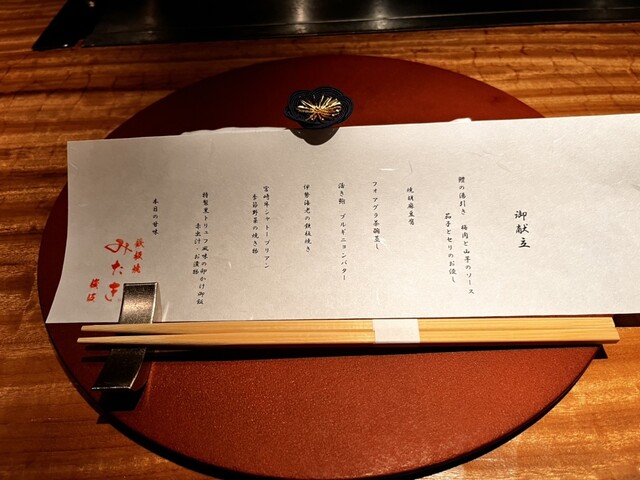 御献立
鱧の湯引き 梅肉と山芋のソース
茄子とセリのお浸し
焼胡麻豆腐
フォアグラ茶碗蒸し
活き鮑 ブルギニョンバター
伊勢海老の鉄板焼き
宮崎牛シャトーブリアン
季節野菜の焼き物
特製黒トリュフ風味の卵かけ御飯
赤出汁・お漬物
本日の甘味
鉄板焼
みたき
横浜